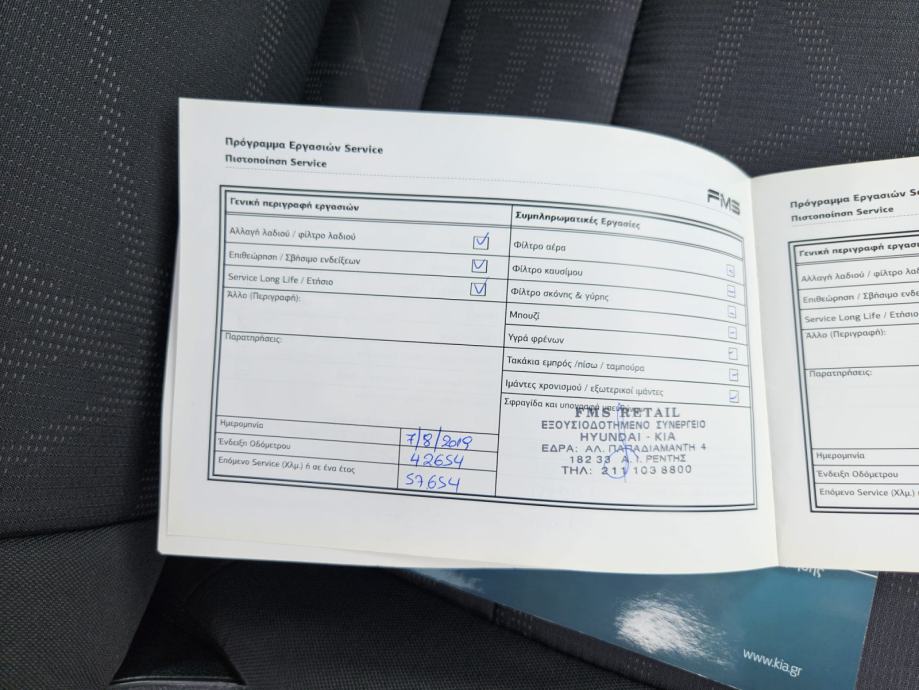 Πρόγραμμα Εργασιών Service
Πιστοποίηση Service
FMS
Γενική περιγραφή εργασιών
Αλλαγή λαδιού / φίλτρο λαδιού
Επιθεώρηση / Σβήσιμο ενδείξεων
Service Long Life / Ετήσιο
Άλλο (Περιγραφή):
Παρατηρήσεις:
Ημερομηνία 7/8/2019
Ένδειξη Οδόμετρου 42654
Επόμενο Service (Χλμ.) ή σε ένα έτος 57654
Συμπληρωματικές Εργασίες
Φίλτρο αέρα
Φίλτρο καυσίμου
Φίλτρο σκόνης & γύρης
Μπουζί
Υγρά φρένων
Τακάκια εμπρός /πίσω / ταμπούρα
Ιμάντες χρονισμού / εξωτερικοί ιμάντες
Σφραγίδα και υπογραφή
FMS RETAIL
ΕΞΟΥΣΙΟΔΟΤΗΜΕΝΟ ΣΥΝΕΡΓΕΙΟ
HYUNDAI - KIA
ΕΔΡΑ: ΑΛ. ΠΑΠΑΔΙΑΜΑΝΤΗ 4
182 33 Α.Ι. ΡΕΝΤΗΣ
ΤΗΛ: 211 103 8800
Πρόγραμμα Εργασιών
Πιστοποίηση Service
Γενική περιγραφή
Αλλαγή λαδιού / φίλτρο
Επιθεώρηση / Σβήσιμο
Service Long Life / Ετήσιο
Άλλο (Περιγραφή):
Παρατηρήσεις:
Ημερομηνία
Ένδειξη Οδόμετρου
Επόμενο Service (Χλμ.)
www.kia.gr